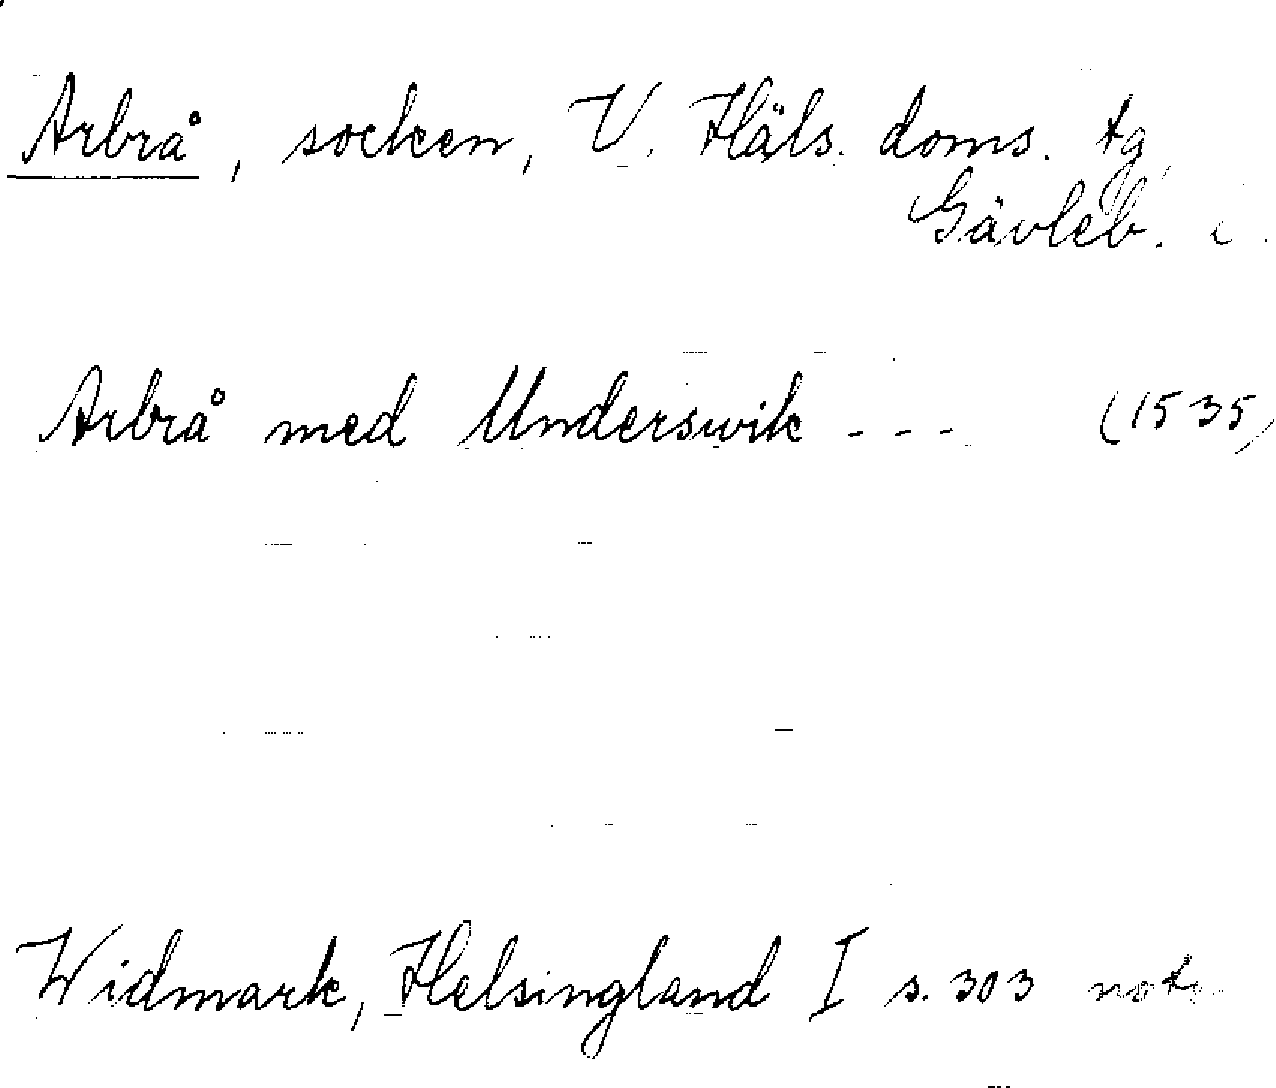 Arbrå, socken, V. Häls. doms. tg,
Gävleb. l.
Arbrå med Underswik - - - (1535)
Widmark, Helsingland I s. 303 not